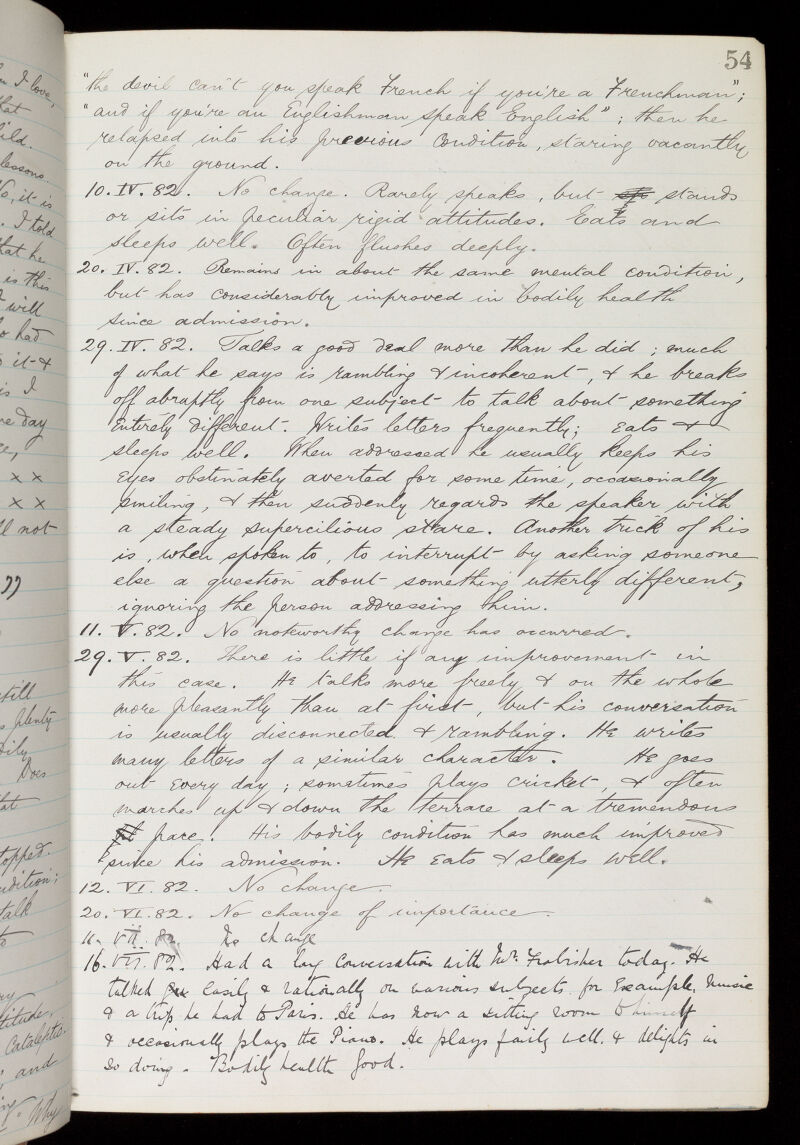 54
"the devil can't you speak French if you're a Frenchman";
"and if you're an Englishman speak English"; then he
relapsed into his previous condition, staring vacantly
on the ground.
10. IV. 82. No change. Rarely speaks, but stands
or sits in peculiar rigid attitudes. Eats and
sleeps well. Often flushes deeply.
20. IV. 82. Remains in about the same mental condition,
but has considerably improved in bodily health
since admission.
29. IV. 82. Talks a good deal more than he did; much
of what he says is rambling & incoherent, & he breaks
off abruptly from one subject to talk about something
entirely different. Writes letters frequently; eats &
sleeps well. When addressed he usually keeps his
eyes obstinately averted for some time, occasionally
smiling, & then suddenly regards the speaker with
a steady supercilious stare. Another trick of his
is, when spoken to, to interrupt by asking someone
else a question about something utterly different,
ignoring the person addressing him.
11. V. 82. No noteworthy change has occurred.
29. V. 82. There is little if any improvement in
this case. He talks more freely & on the whole
more pleasantly than at first, but his conversation
is usually disconnected & rambling. He writes
many letters of a similar character. He goes
out every day; sometimes plays cricket, & often
marches up & down the terrace at a tremendous
pace. His bodily condition has much improved
since his admission. He eats & sleeps well.
12. VI. 82. No change.
20. VI. 82. No change of importance.
11. VII. 82. No change
16. VII. 82. Had a long conversation with Mr. Frobisher today. He
talked easily & rationally on various subjects for Example, music
& a trip he had to Paris. He has now a sitting room to himself
& occasionally plays the Piano. He plays fairly well & delights in
so doing. Bodily health good.